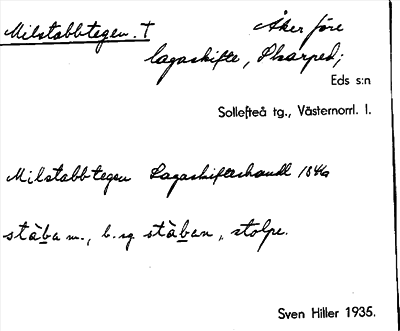 Milstabbtegen. T
Åker före
lagaskifte, Skarped;
Eds s:n
Sollefteå tg., Västernorrl. l.
Milstabbtegen Lagaskifteshandl 1846
stàba m., b. sg stàban, stolpe.
Sven Hiller 1935.